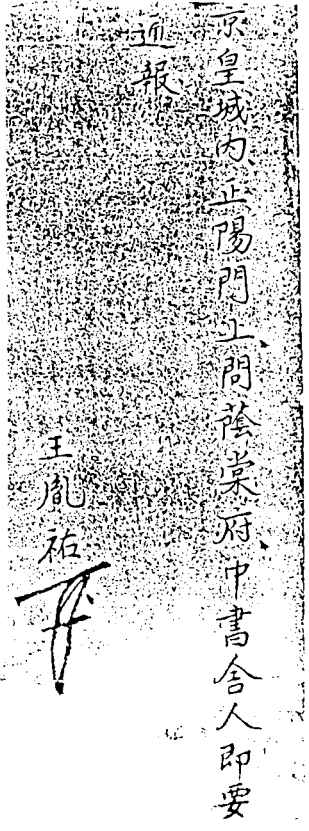 京皇城内正陽門上問蔭棠府中書舍人即要
迊報
王胤祐